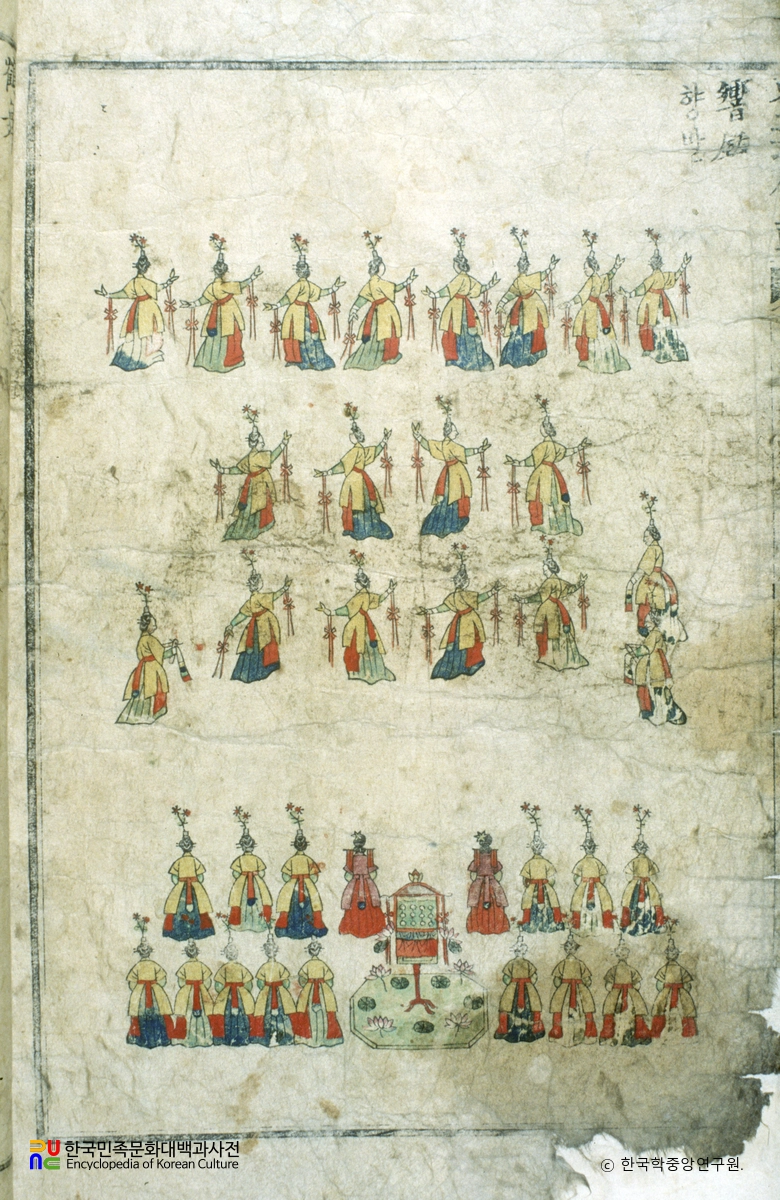 響鈸
향발
한국민족문화대백과사전
Encyclopedia of Korean Culture
© 한국학중앙연구원.